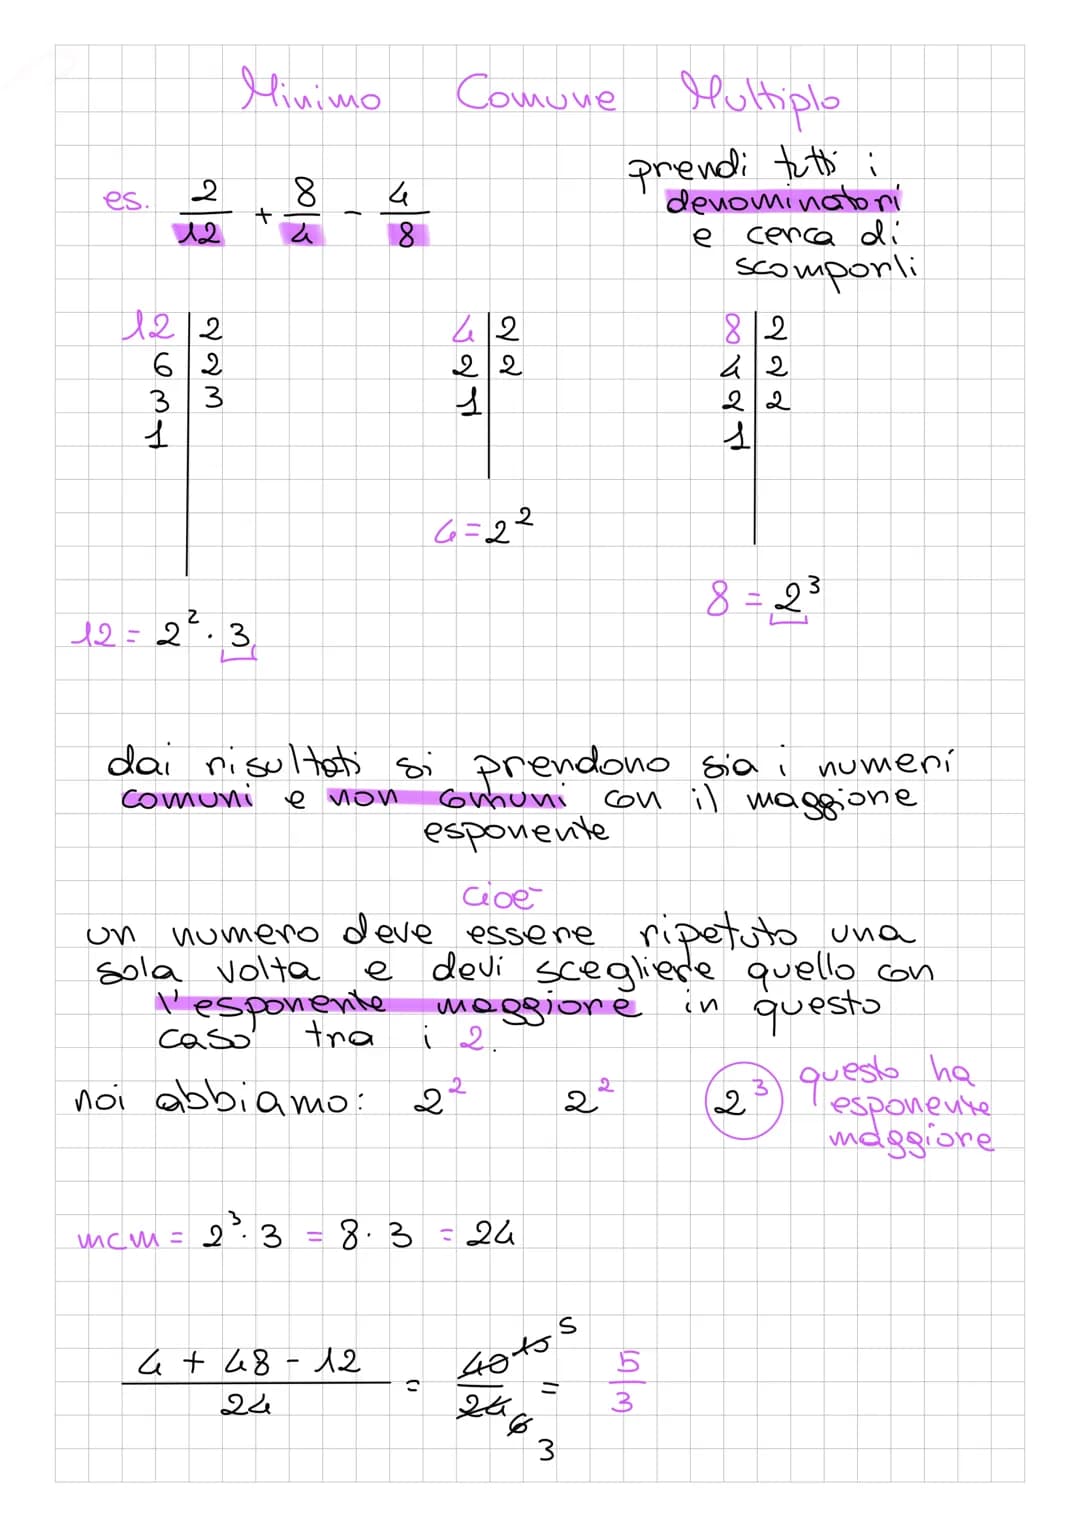 Minimo Comune Multiplo
es. 2/12 + 8/4 - 4/8
prendi tutti i
denominatori
e cerca di
scomporli
12 | 2
6 | 2
3 | 3
1
4 | 2
2 | 2
1
8 | 2
4 | 2
2 | 2
1
4 = 2²
8 = 2³
12 = 2² · 3
dai risultati si prendono sia i numeri
comuni e non comuni con il maggiore
esponente
cioè
un numero deve essere ripetuto una
sola volta e devi scegliere quello con
l'esponente maggiore in questo
caso tra i 2.
noi abbiamo: 2² 2² 2³
questo ha
esponente
maggiore
mcm = 2³ · 3 = 8 · 3 = 24
4 + 48 - 12 / 24 = 40 10 5 / 24 6 3 = 5/3